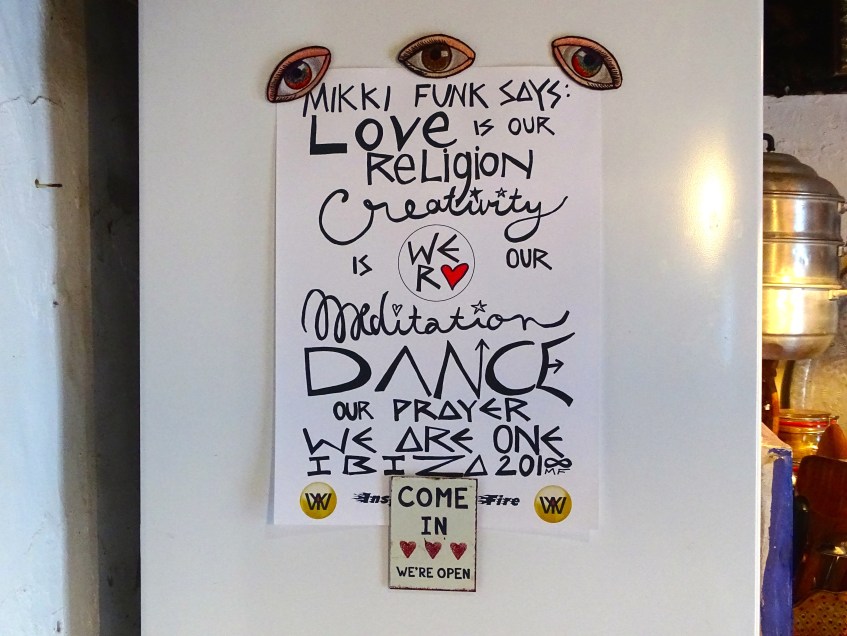 MIKKI FUNK SAYS:
LOVE IS OUR
RELIGION
Creativity
IS WE R OUR
Meditation
DANCE
OUR PRAYER
WE ARE ONE
IBIZA 2018
MF
Fire
COME
IN
WE'RE OPEN